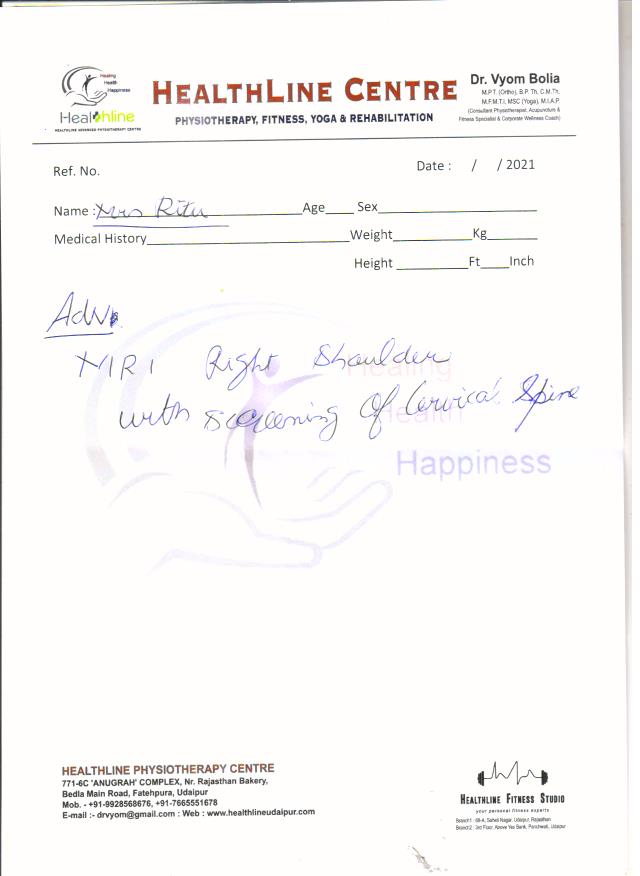 Healing
Health
Happiness
Healthline
HEALTHLINE ADVANCED PHYSIOTHERAPY CENTRE
HEALTHLINE CENTRE
PHYSIOTHERAPY, FITNESS, YOGA & REHABILITATION
Dr. Vyom Bolia
M.P.T. (Ortho), B.P. Th, C.M.Th,
M.F.M.T.I, MSC (Yoga), M.I.A.P.
(Consultant Physiotherapist, Acupuncture &
Fitness Specialist & Corporate Wellness Coach)
Ref. No.
Date : / / 2021
Name : Mrs Ritu Age Sex
Medical History Weight Kg
Height Ft Inch
Adv.
MRI Right Shoulder
with screening of Cervical Spine
Healing
Health
Happiness
HEALTHLINE PHYSIOTHERAPY CENTRE
771-6C 'ANUGRAH' COMPLEX, Nr. Rajasthan Bakery,
Bedla Main Road, Fatehpura, Udaipur
Mob. - +91-9928568676, +91-7665551678
E-mail :- drvyom@gmail.com : Web : www.healthlineudaipur.com
HEALTHLINE FITNESS STUDIO
your personal fitness experts
Branch1 : 68-A, Saheli Nagar, Udaipur, Rajasthan
Branch2 : 3rd Floor, Above Yes Bank, Panchwati, Udaipur